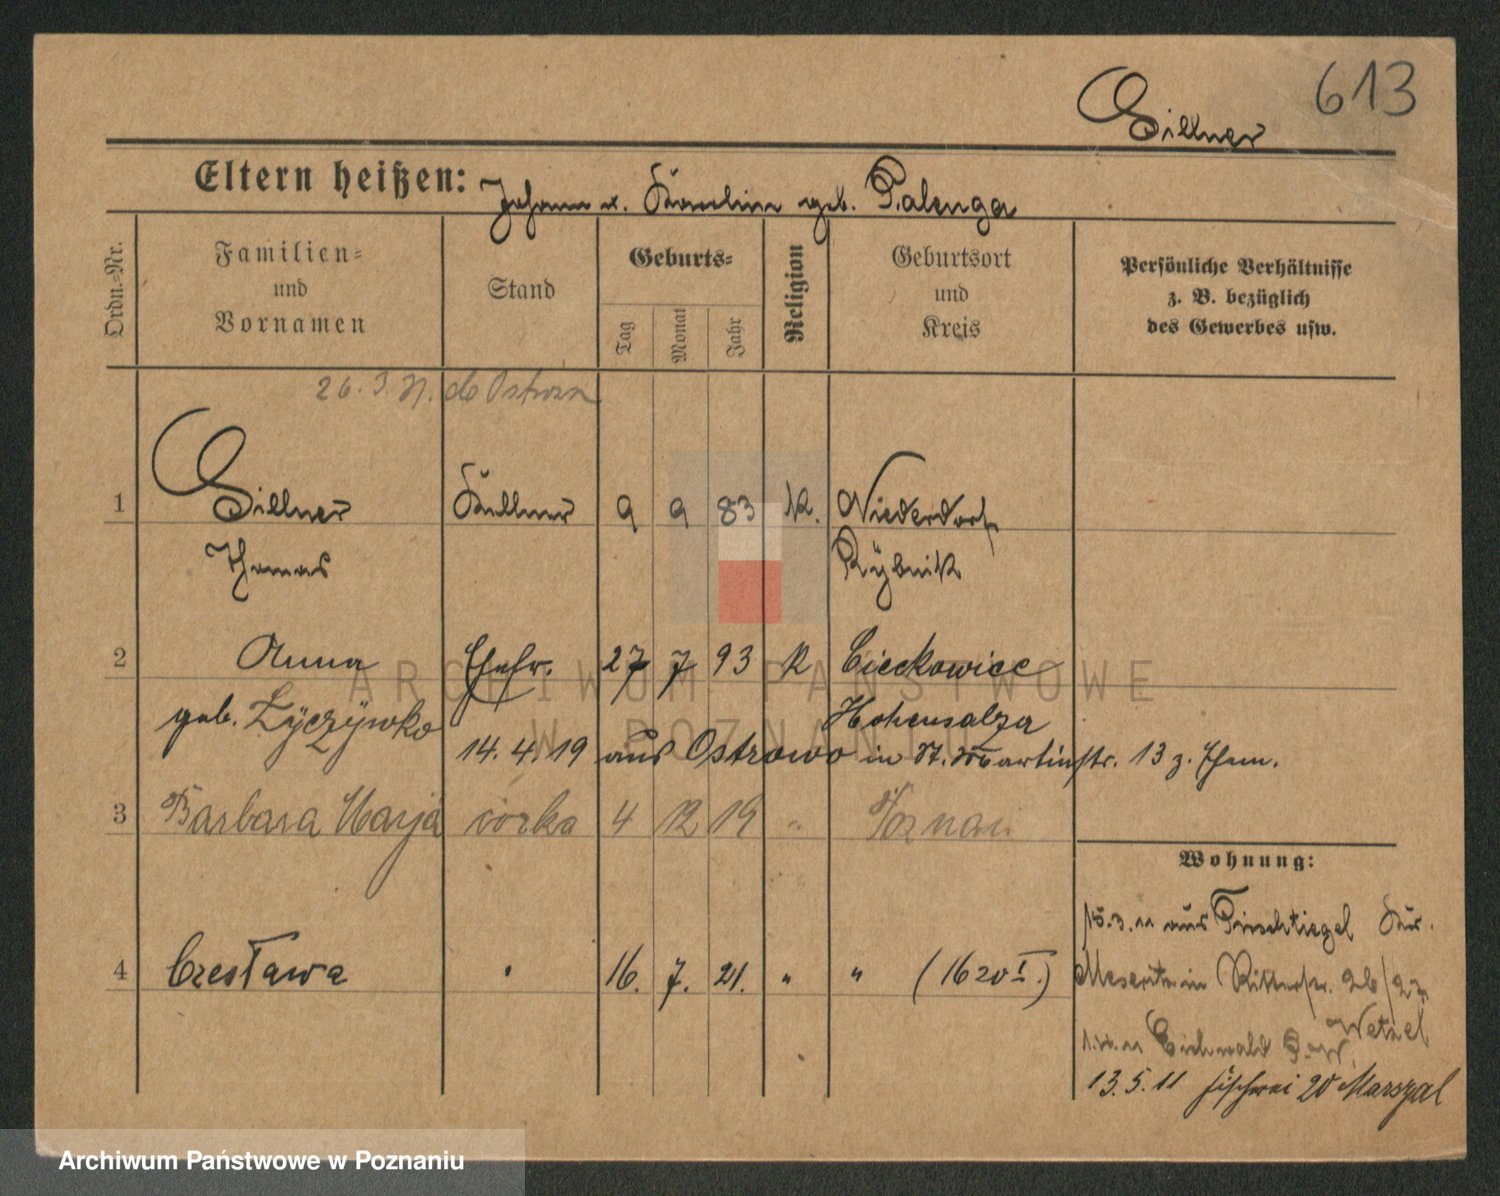 613
Sillner
Eltern heißen: Johann u. Karoline geb. Palenga
Ordn.-Nr.
Familien-
und
Vornamen
Stand
Geburts-
Tag
Monat
Jahr
Religion
Geburtsort
und
Kreis
Persönliche Verhältnisse
z. B. bezüglich
des Gewerbes usw.
26. 3. do
1 Sillner Kellner 9 9 83 K. Niederdorf
Thomas Rybnik
2 Anna Ehefr. 27 7 93 K Cieckowice
geb. Życzywko Hohensalza
14. 4. 19 aus Ostrowo in St. Martinstr. 13 z. Ehem.
3 Barbara Marja córka 4 12 19 " Poznań
Wohnung:
15. 3. 11 aus Tirschtiegel Kr.
4 Czesława 16. 7. 21. " " (1620 I.)
Meseritz in Ritterstr. 26/27
Wetzel
Eichwald
13. 5. 11 Fischerei 20 Marszal
ARCHIWUM PAŃSTWOWE
W POZNANIU
Archiwum Państwowe w Poznaniu